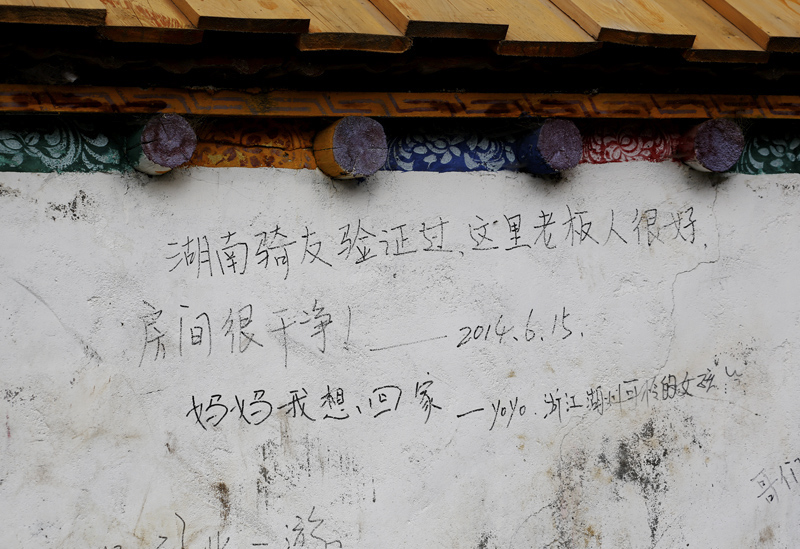 湖南骑友验证过,这里老板人很好.
房间很干净! ——— 2014.6.15.
妈妈我想回家 — yoyo. 浙江湖州可怜的女孩
哥们
游